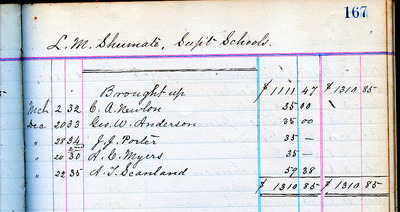 167
L. M. Shumate, Sup't Schools.
Brought up $ 1111 47 $ 1310 85
Mch 2 32 C. A. Newlon 35 00
Dec 20 33 Geo. W. Anderson 35 00
" 28 34 J. J. Porter 35 —
" 20 30 H. C. Myers 35 —
" 22 35 A. T. Scanland 59 38
$ 1310 85 $ 1310 85